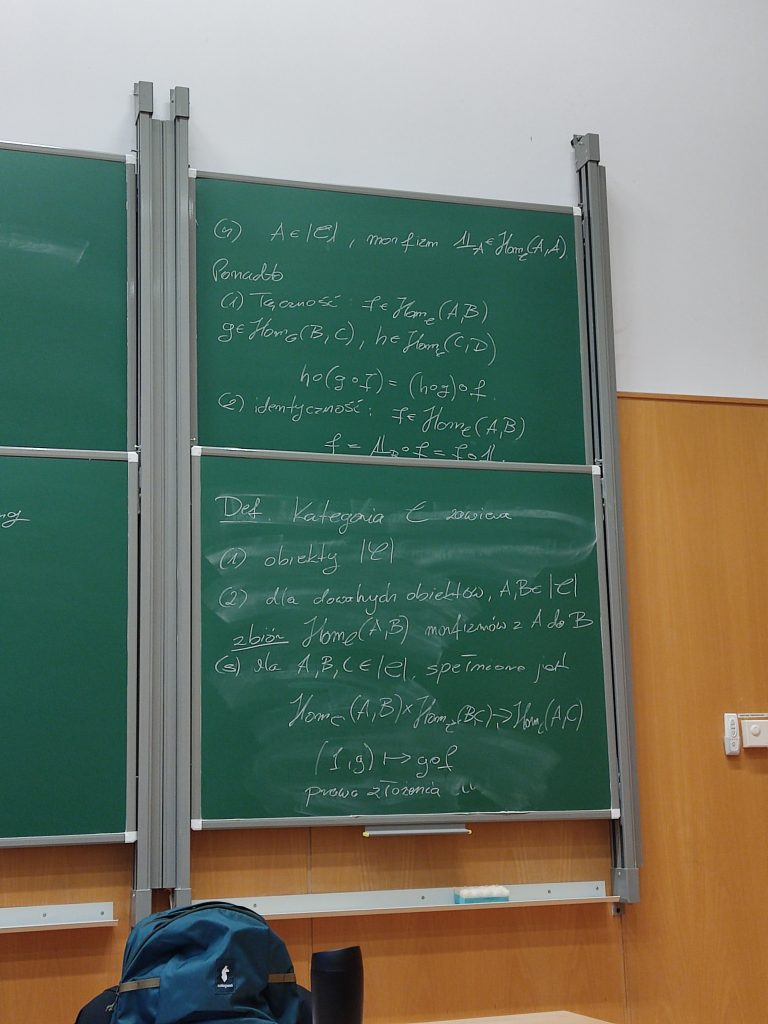 (4) A ∈ |𝒞|, morfizm 𝟙_A ∈ Hom_𝒞(A,A)
Ponadto
(1) Łączność: f ∈ Hom_𝒞(A,B)
g ∈ Hom_𝒞(B,C), h ∈ Hom_𝒞(C,D)
h∘(g∘f) = (h∘g)∘f.
(2) identyczność: f ∈ Hom_𝒞(A,B)
f = 𝟙_B∘f = f∘𝟙
Def. Kategoria 𝒞 zawiera
(1) obiekty |𝒞|
(2) dla dowolnych obiektów, A,B ∈ |𝒞|
zbiór Hom_𝒞(A,B) morfizmów z A do B
(3) dla A,B,C ∈ |𝒞|, spełnione jest
Hom_𝒞(A,B) × Hom_𝒞(B,C) → Hom_𝒞(A,C)
(f,g) ↦ g∘f
prawo złożenia
cotopaxi